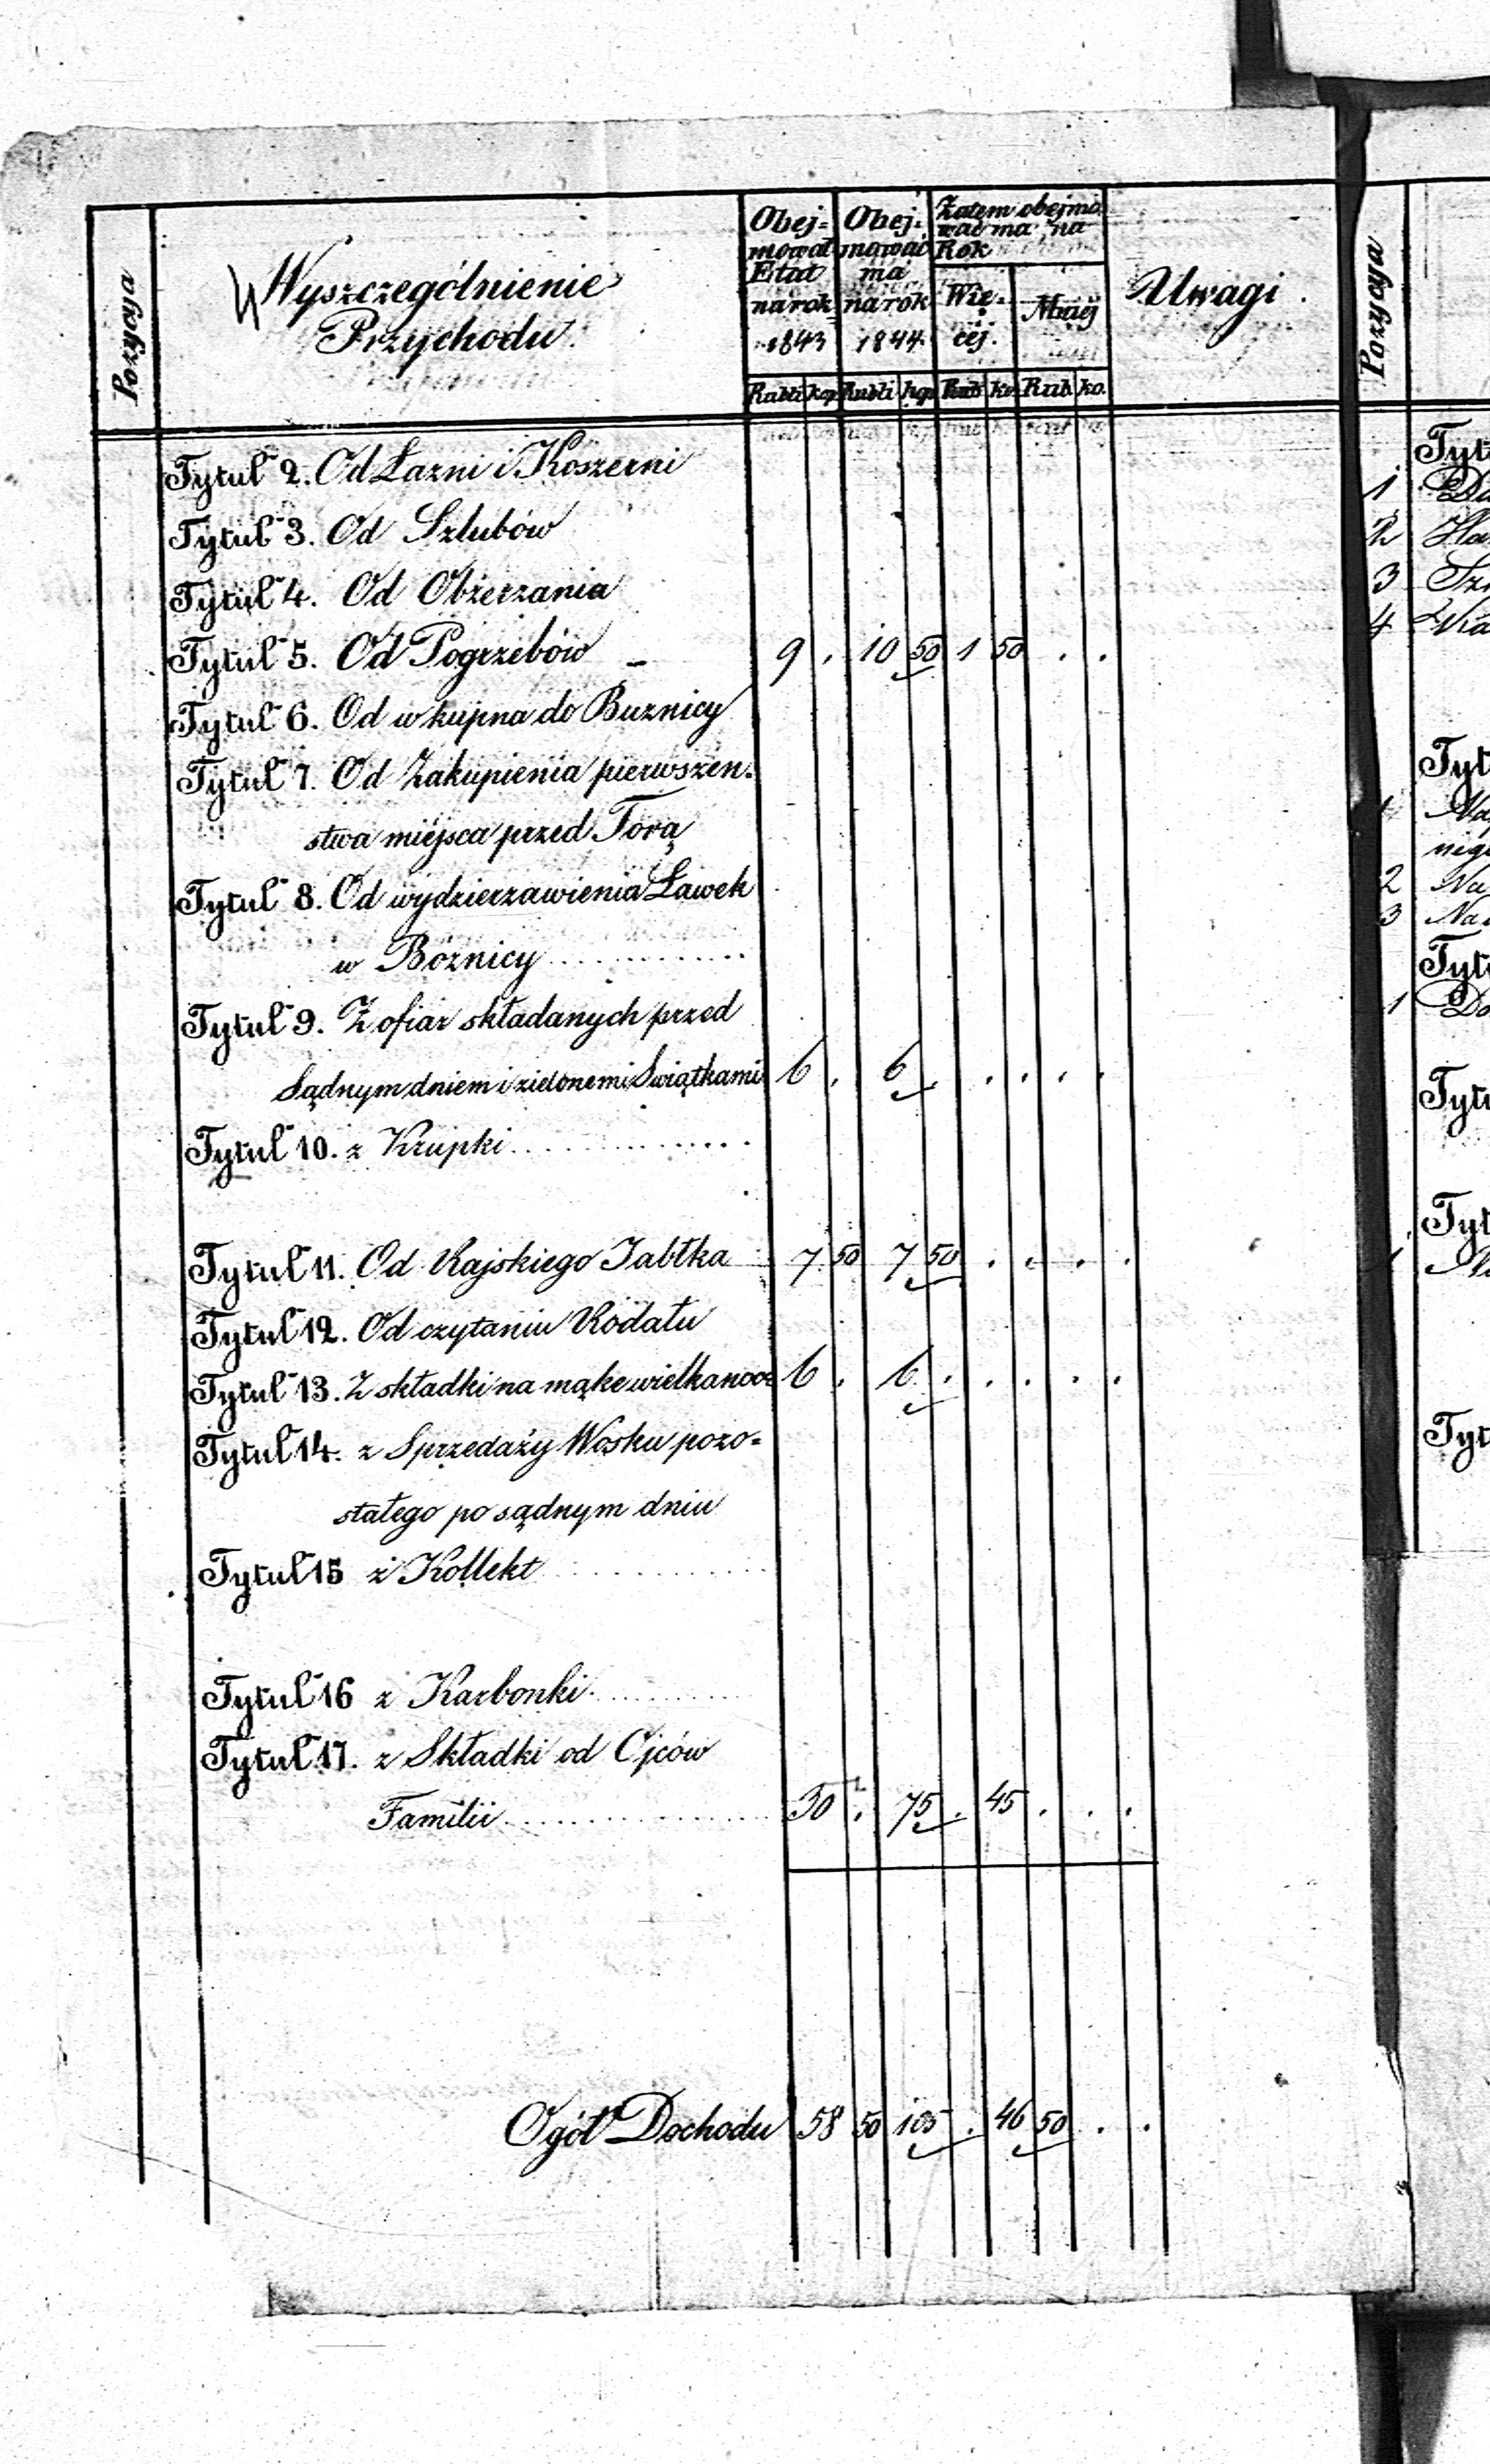 Pozycya
Wyszczególnienie
Przychodu.
Obej=
mował
Etat
na rok
1843
Rubli kop
Obej=
mować
ma
na rok
1844
Rubli kop
Zatem obejmo
wać ma na
Rok
Wię=
cej.
Mniej
Rub ko. Rub. ko.
Uwagi
Tytuł 2. Od Łazni i Koszerni
Tytuł 3. Od Szlubów
Tytuł 4. Od Obżerzania
Tytuł 5. Od Pogrzebów 9 . 10 50 1 50 . .
Tytuł 6. Od wkupna do Buznicy
Tytuł 7. Od Zakupienia pierwszen=
stwa miejsca przed Torą
Tytuł 8. Od wydzierzawienia Ławek
w Bóznicy
Tytuł 9. Z ofiar składanych przed
Sądnym dniem i zielonemi Swiątkami 6 . 6 . . . . .
Tytuł 10. z Krupki
Tytuł 11. Od Rajskiego Jabłka 7 50 7 50 . . . .
Tytuł 12. Od czytaniu Rodału
Tytuł 13. Z składki na mąke wielkanoc 6 . 6 . . . . .
Tytuł 14. z Sprzedaży Wosku pozo=
stałego po sądnym dniu
Tytuł 15 z Kollekt
Tytuł 16 z Karbonki
Tytuł 17. z Składki od Ojców
Familii 30 . 75 . 45 . . .
Ogół Dochodu 58 50 105 . 46 50 . .
Pozycya
1
2
3
4
Tyt
2
3
Tyt
1
Tyt
Tyt
1
Tyt